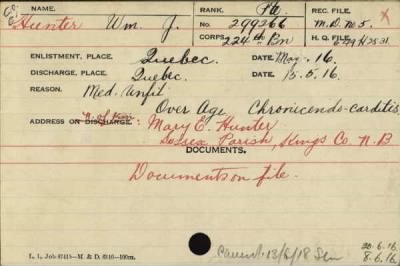 NAME. RANK. Pte. REC. FILE.
Hunter Wm. J. No. 299266 M.D. No 5.
CORPS 224th Bn H. Q. FILE
ENLISTMENT, PLACE. Quebec. DATE May. 16.
DISCHARGE, PLACE. Quebec. DATE. 15.5.16.
REASON. Med. Unfit
Over Age Chronic endo-carditis,
N. of Kin
ADDRESS ON DISCHARGE. Mary E. Hunter
Sussex Parish, Kings Co. N.B
DOCUMENTS.
Documents on file.
20.6.16.
13/6/18
8.6.16.